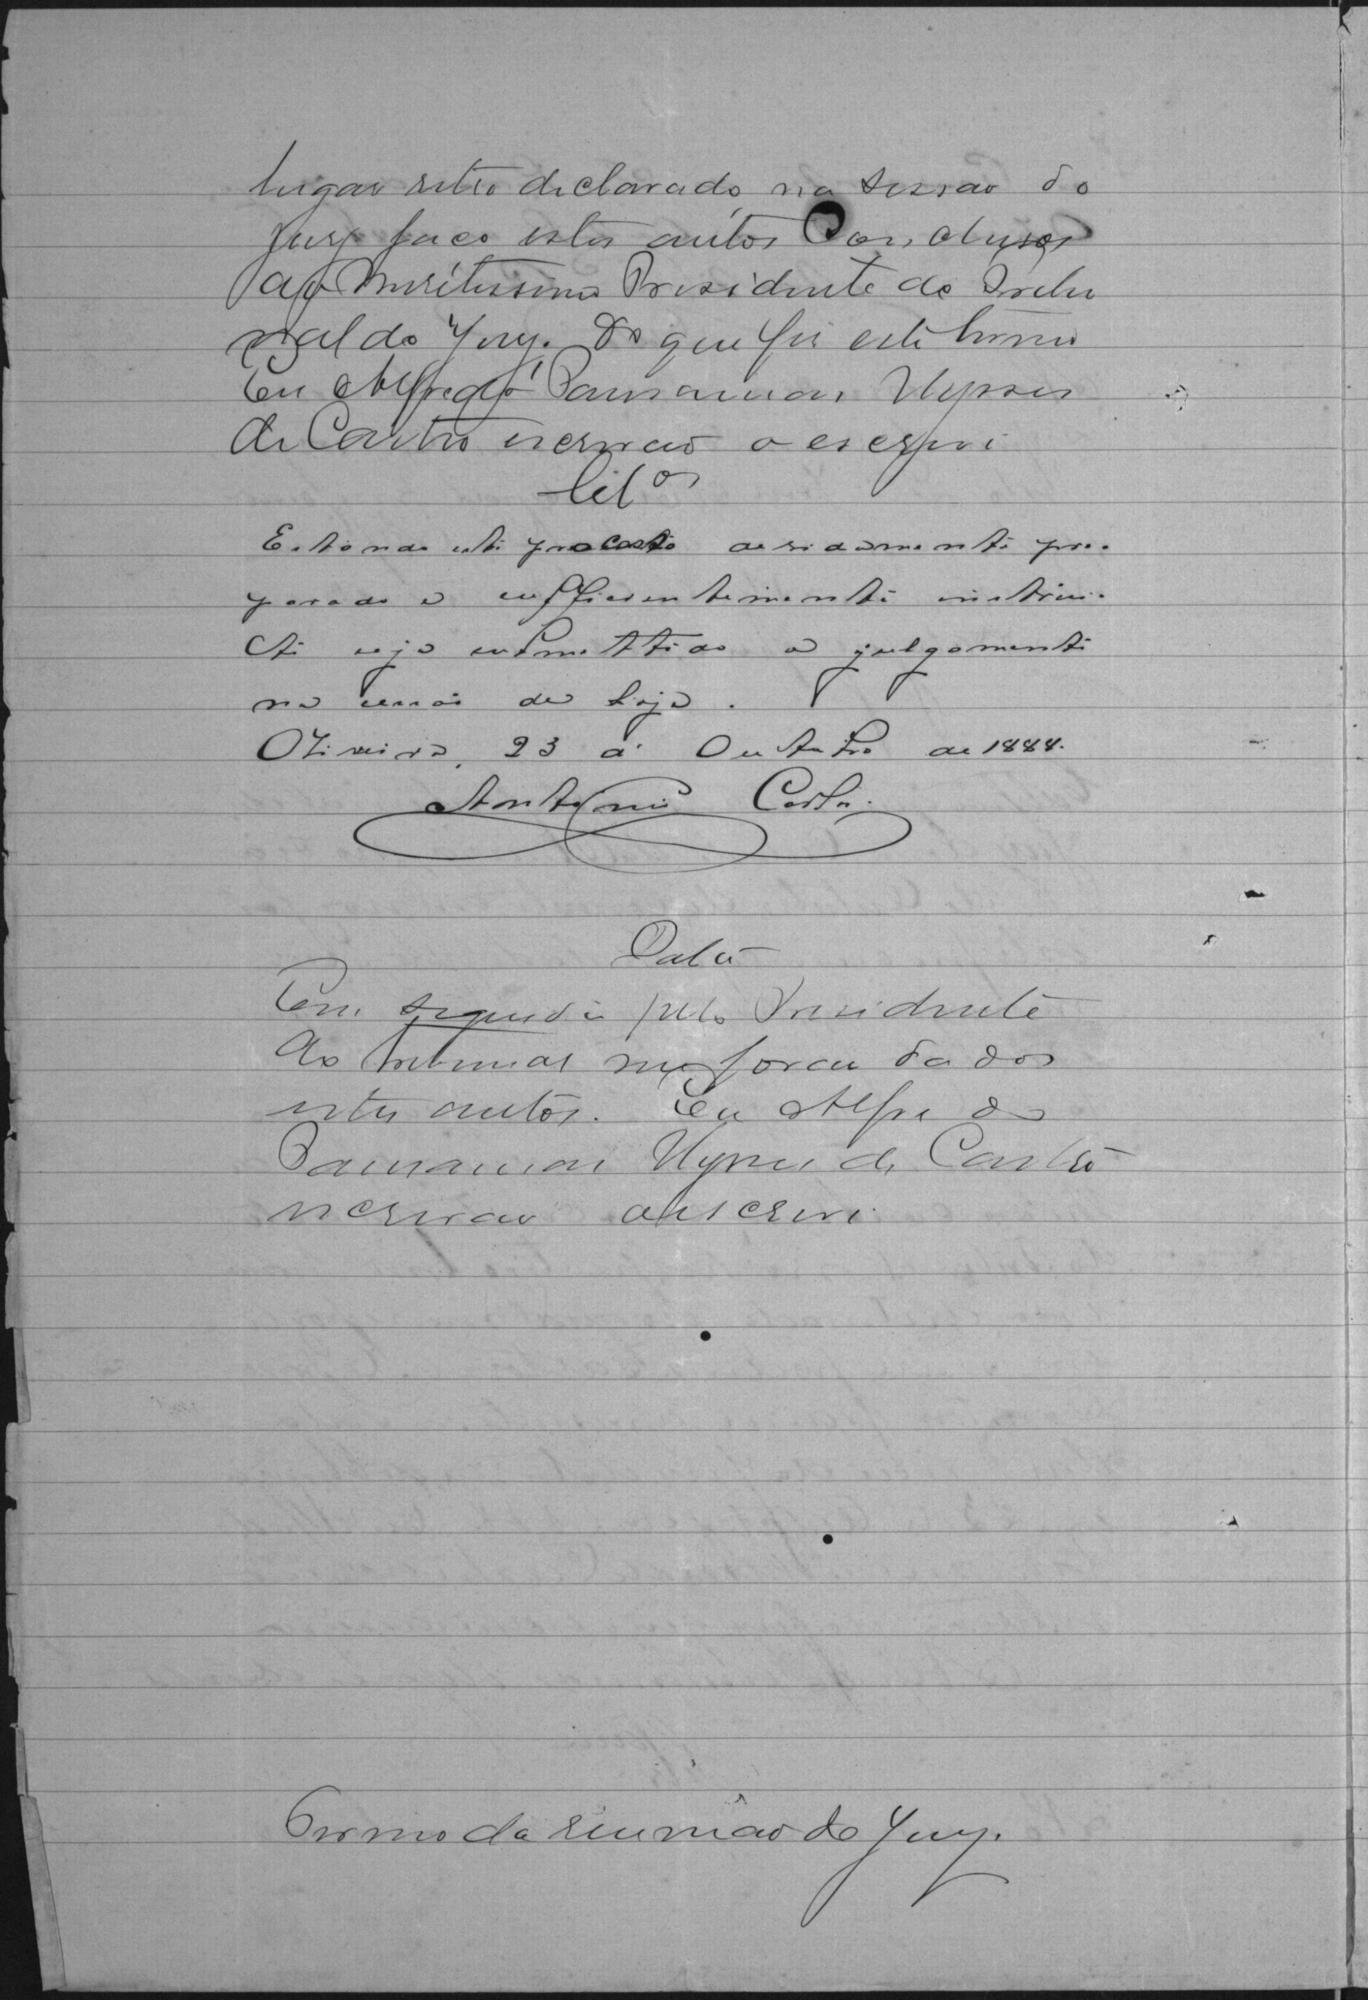 lugar retro declarado, na sessão do
Jury faço estes autos Conclusos
ao Meritissimo Presidente do Tribu
nal do Jury. Do que fis este termo
Eu Alfredo Pausanias Ulysses
de Castro escrivão o escrevi
Cl.os
Estando este processo devidamente pre-
parado e sufficientemente instrui-
do seja submettido a julgamento
na sessão de hoje.
Oliveira, 23 de Outubro de 1888.
Antonio Costa.
Data
Em seguida pelo Presidente
do tribunal me forão dados
estes autos. Eu Alfredo
Pausanias Ulysses de Castro
escrivão o escrevi.
Termo da reunião do Jury.